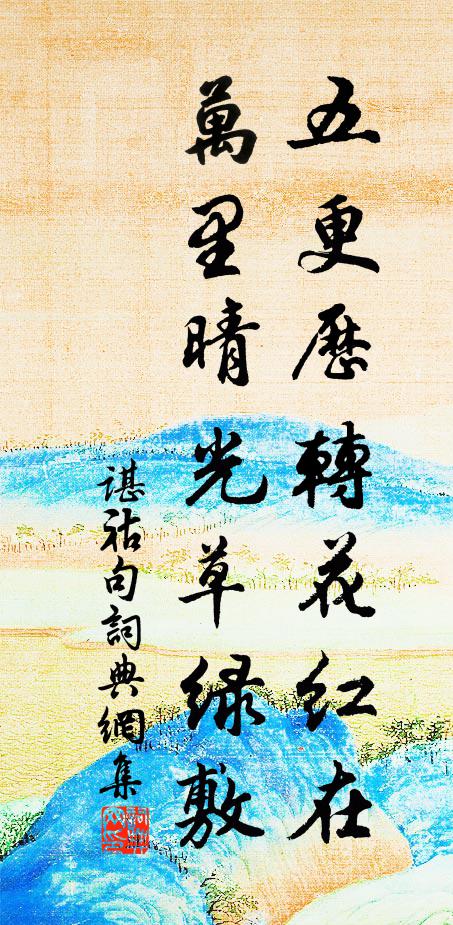 五更歷轉花红在
萬里晴光草绿敷
谌祜句詞典網集